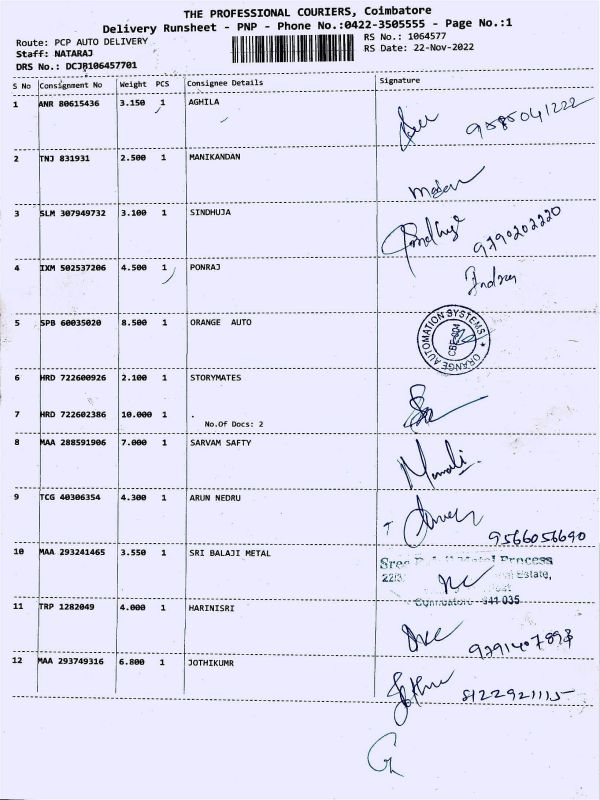 THE PROFESSIONAL COURIERS, Coimbatore
Delivery Runsheet - PNP - Phone No.:0422-3505555 - Page No.:1
Route: PCP AUTO DELIVERY
RS No.: 1064577
Staff: NATARAJ
RS Date: 22-Nov-2022
DRS No.: DCJB106457701
S No Consignment No Weight PCS Consignee Details Signature
1 ANR 80615436 3.150 1 AGHILA
9585041222
2 TNJ 831931 2.500 1 MANIKANDAN
3 SLM 307949732 3.100 1 SINDHUJA
9790202220
4 IXM 502537206 4.500 1 PONRAJ
5 SPB 60035020 8.500 1 ORANGE AUTO
ORANGE AUTOMATION SYSTEMS
6 HRD 722600926 2.100 1 STORYMATES
7 HRD 722602386 10.000 1 .
No.Of Docs: 2
8 MAA 288591906 7.000 1 SARVAM SAFTY
9 TCG 40306354 4.300 1 ARUN NEDRU
9566056690
10 MAA 293241465 3.550 1 SRI BALAJI METAL
Process
Estate,
641 035
11 TRP 1282049 4.000 1 HARINISRI
12 MAA 293749316 6.800 1 JOTHIKUMR
8122921115